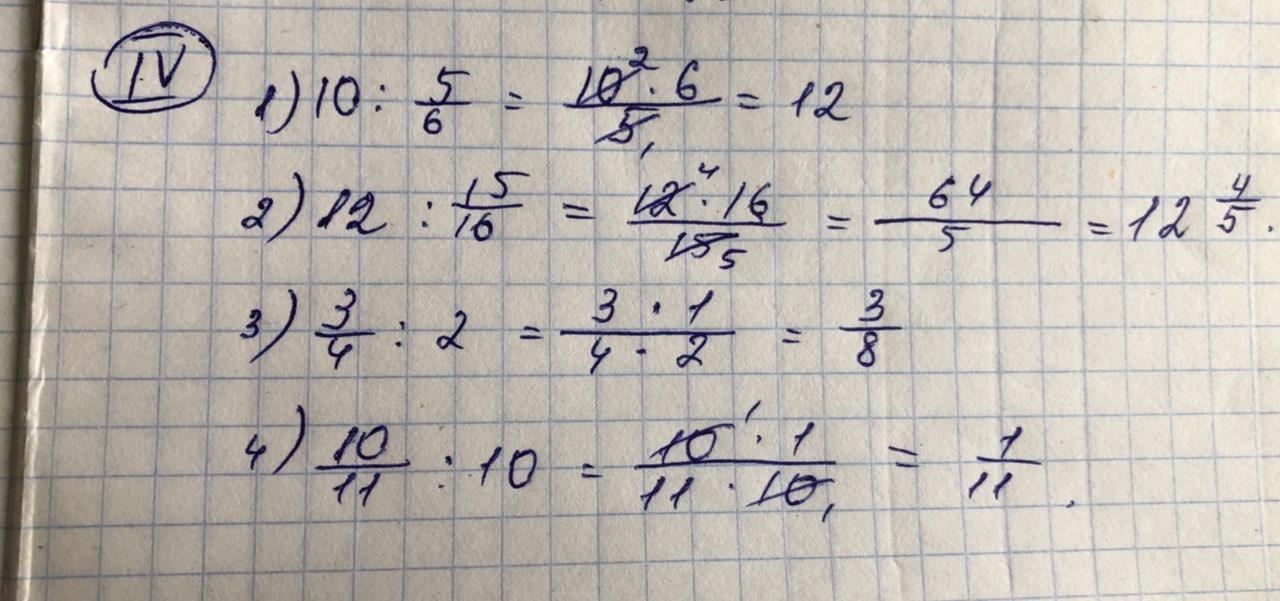 IV
1) 10 : 5/6 = 10² · 6 / 5₁ = 12
2) 12 : 15/16 = 12⁴ · 16 / 15₅ = 64/5 = 12 4/5.
3) 3/4 : 2 = 3 · 1 / 4 · 2 = 3/8
4) 10/11 : 10 = 10¹ · 1 / 11 · 10₁ = 1/11.